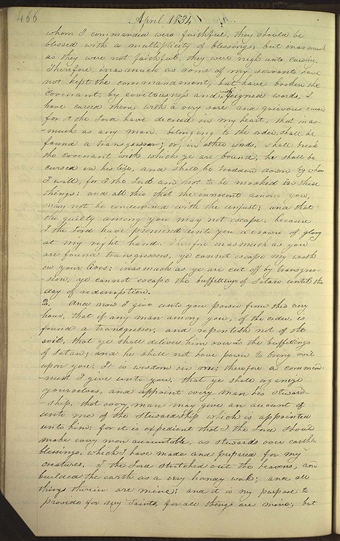 466 April 1834
whom I commanded were faithful, they should be
blessed with a multiplicity of blessings; but inasmuch
as they were not faithful, they were nigh unto cursing.
Therefore inasmuch as some of my servants have
not kept the commandment, but have broken the
covenant, by covetousness and feigned words, I
have cursed them with a very sore and grievous curse;
for I the Lord have decreed in my heart, that inas-
-much as any man belonging to the order, shall be
found a transgressor; or, in other words, shall break
the covenant with which ye are bound, he shall be
cursed in his life, and shall be trodden down by whom
I will, for I the Lord am not to be mocked in these
things: and all this that the innocent among you,
may not be condemned with the unjust; and that
the guilty among you may not escape, because
I the Lord have promised unto you a crown of glory
at my right hand. Therefore inasmuch as you
are found transgressors, ye cannot escape my wrath
in your lives: inasmuch as ye are cut off by transgres-
sion, ye cannot escape the buffetings of Satan until the
day of redemption.
2. And now I give unto you power from this very
hour, that if any man among you, of the order is
found a transgressor, and repenteth not of the
evil, that ye shall deliver him over unto the buffetings
of Satan; and he shall not have power to bring evil
upon you. It is wisdom in me; therefore a command-
ment I give unto you, that ye shall organize
yourselves, and appoint every man his steward-
ship, that every man may give an account
unto me of the stewardship which is appointed
unto him: for it is expedient that I the Lord should
make every man accountable, as stewards over earthly
blessings, which I have made and prepared for my
creatures. I the Lord stretched out the heavens, and
builded the earth as a very handy work; and all
things therein are mine; and it is my purpose to
provide for my saints, for all things are mine; but